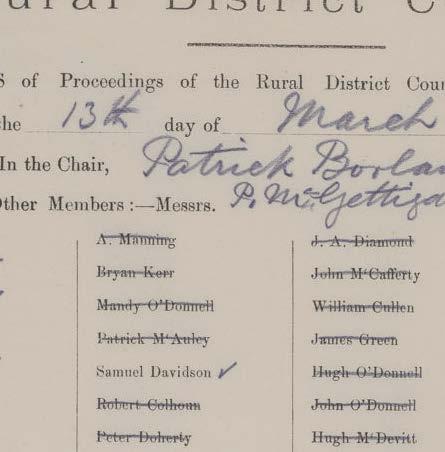 Rural District C
S of Proceedings of the Rural District Cou
the 13th day of March
In the Chair, Patrick Borla
Other Members:—Messrs. P. McGettiga
A. Manning
Bryan Kerr
Mandy O'Donnell
Patrick M'Auley
Samuel Davidson ✓
Robert Colhoun
Peter Doherty
J. A. Diamond
John M'Cafferty
William Cullen
James Green
Hugh O'Donnell
John O'Donnell
Hugh M'Devitt